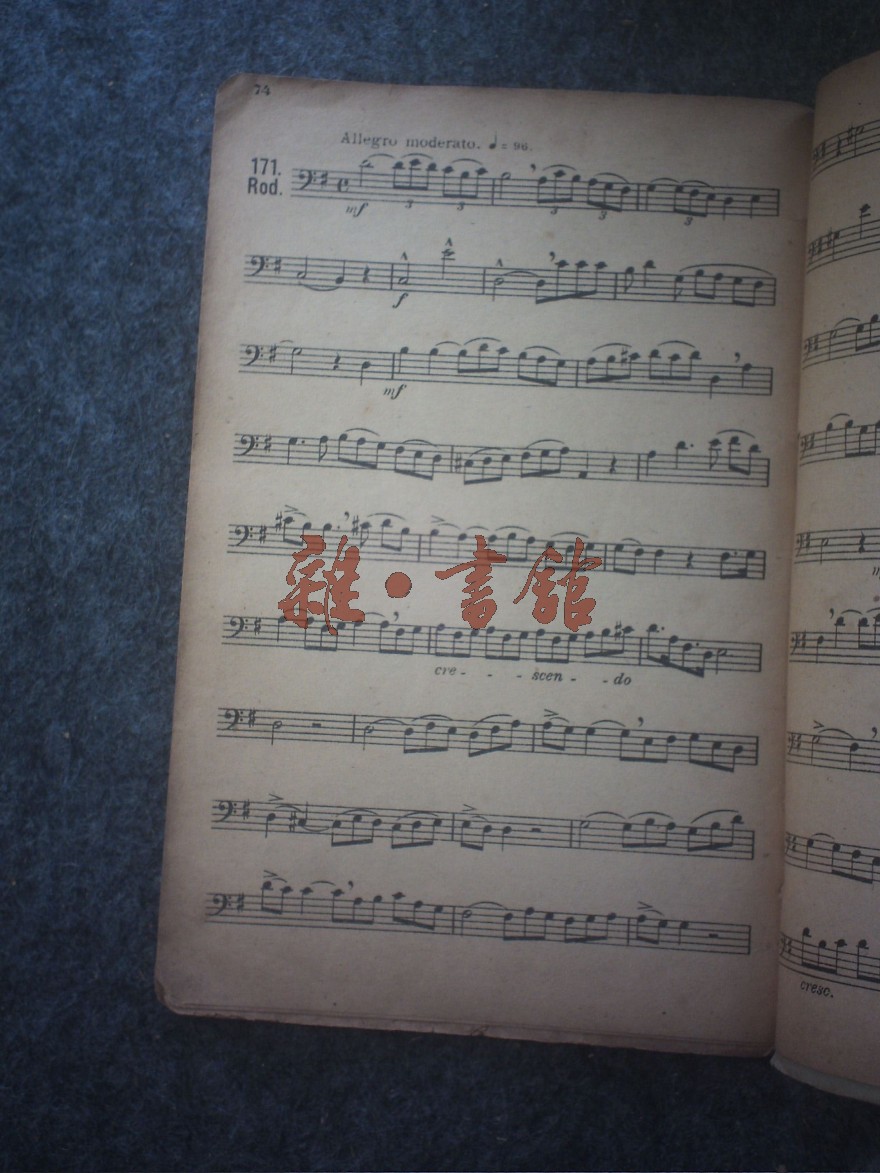 74
Allegro moderato. ♩ = 96.
171.
Rod.
mf
3 3 3 3 3
f
mf
雜·書館
cre - - - scen - - do
cresc.